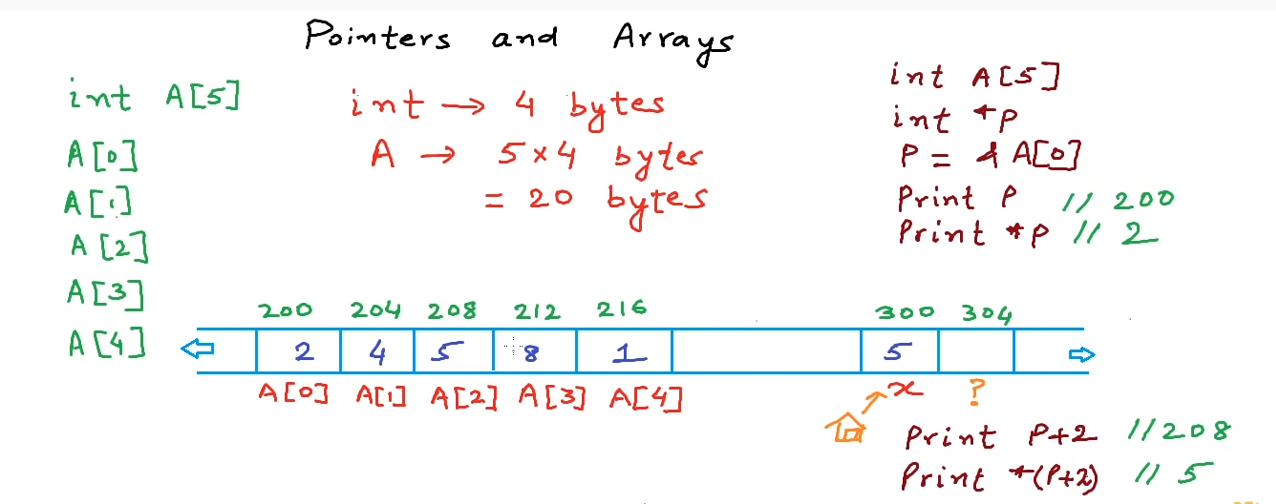 Pointers and Arrays
int A[5]
A[0]
A[1]
A[2]
A[3]
A[4]
int → 4 bytes
A → 5×4 bytes
= 20 bytes
int A[5]
int *P
P = &A[0]
Print P // 200
Print *P // 2
200 204 208 212 216 300 304
2 4 5 8 1 5
A[0] A[1] A[2] A[3] A[4] x ?
Print P+2 // 208
Print *(P+2) // 5